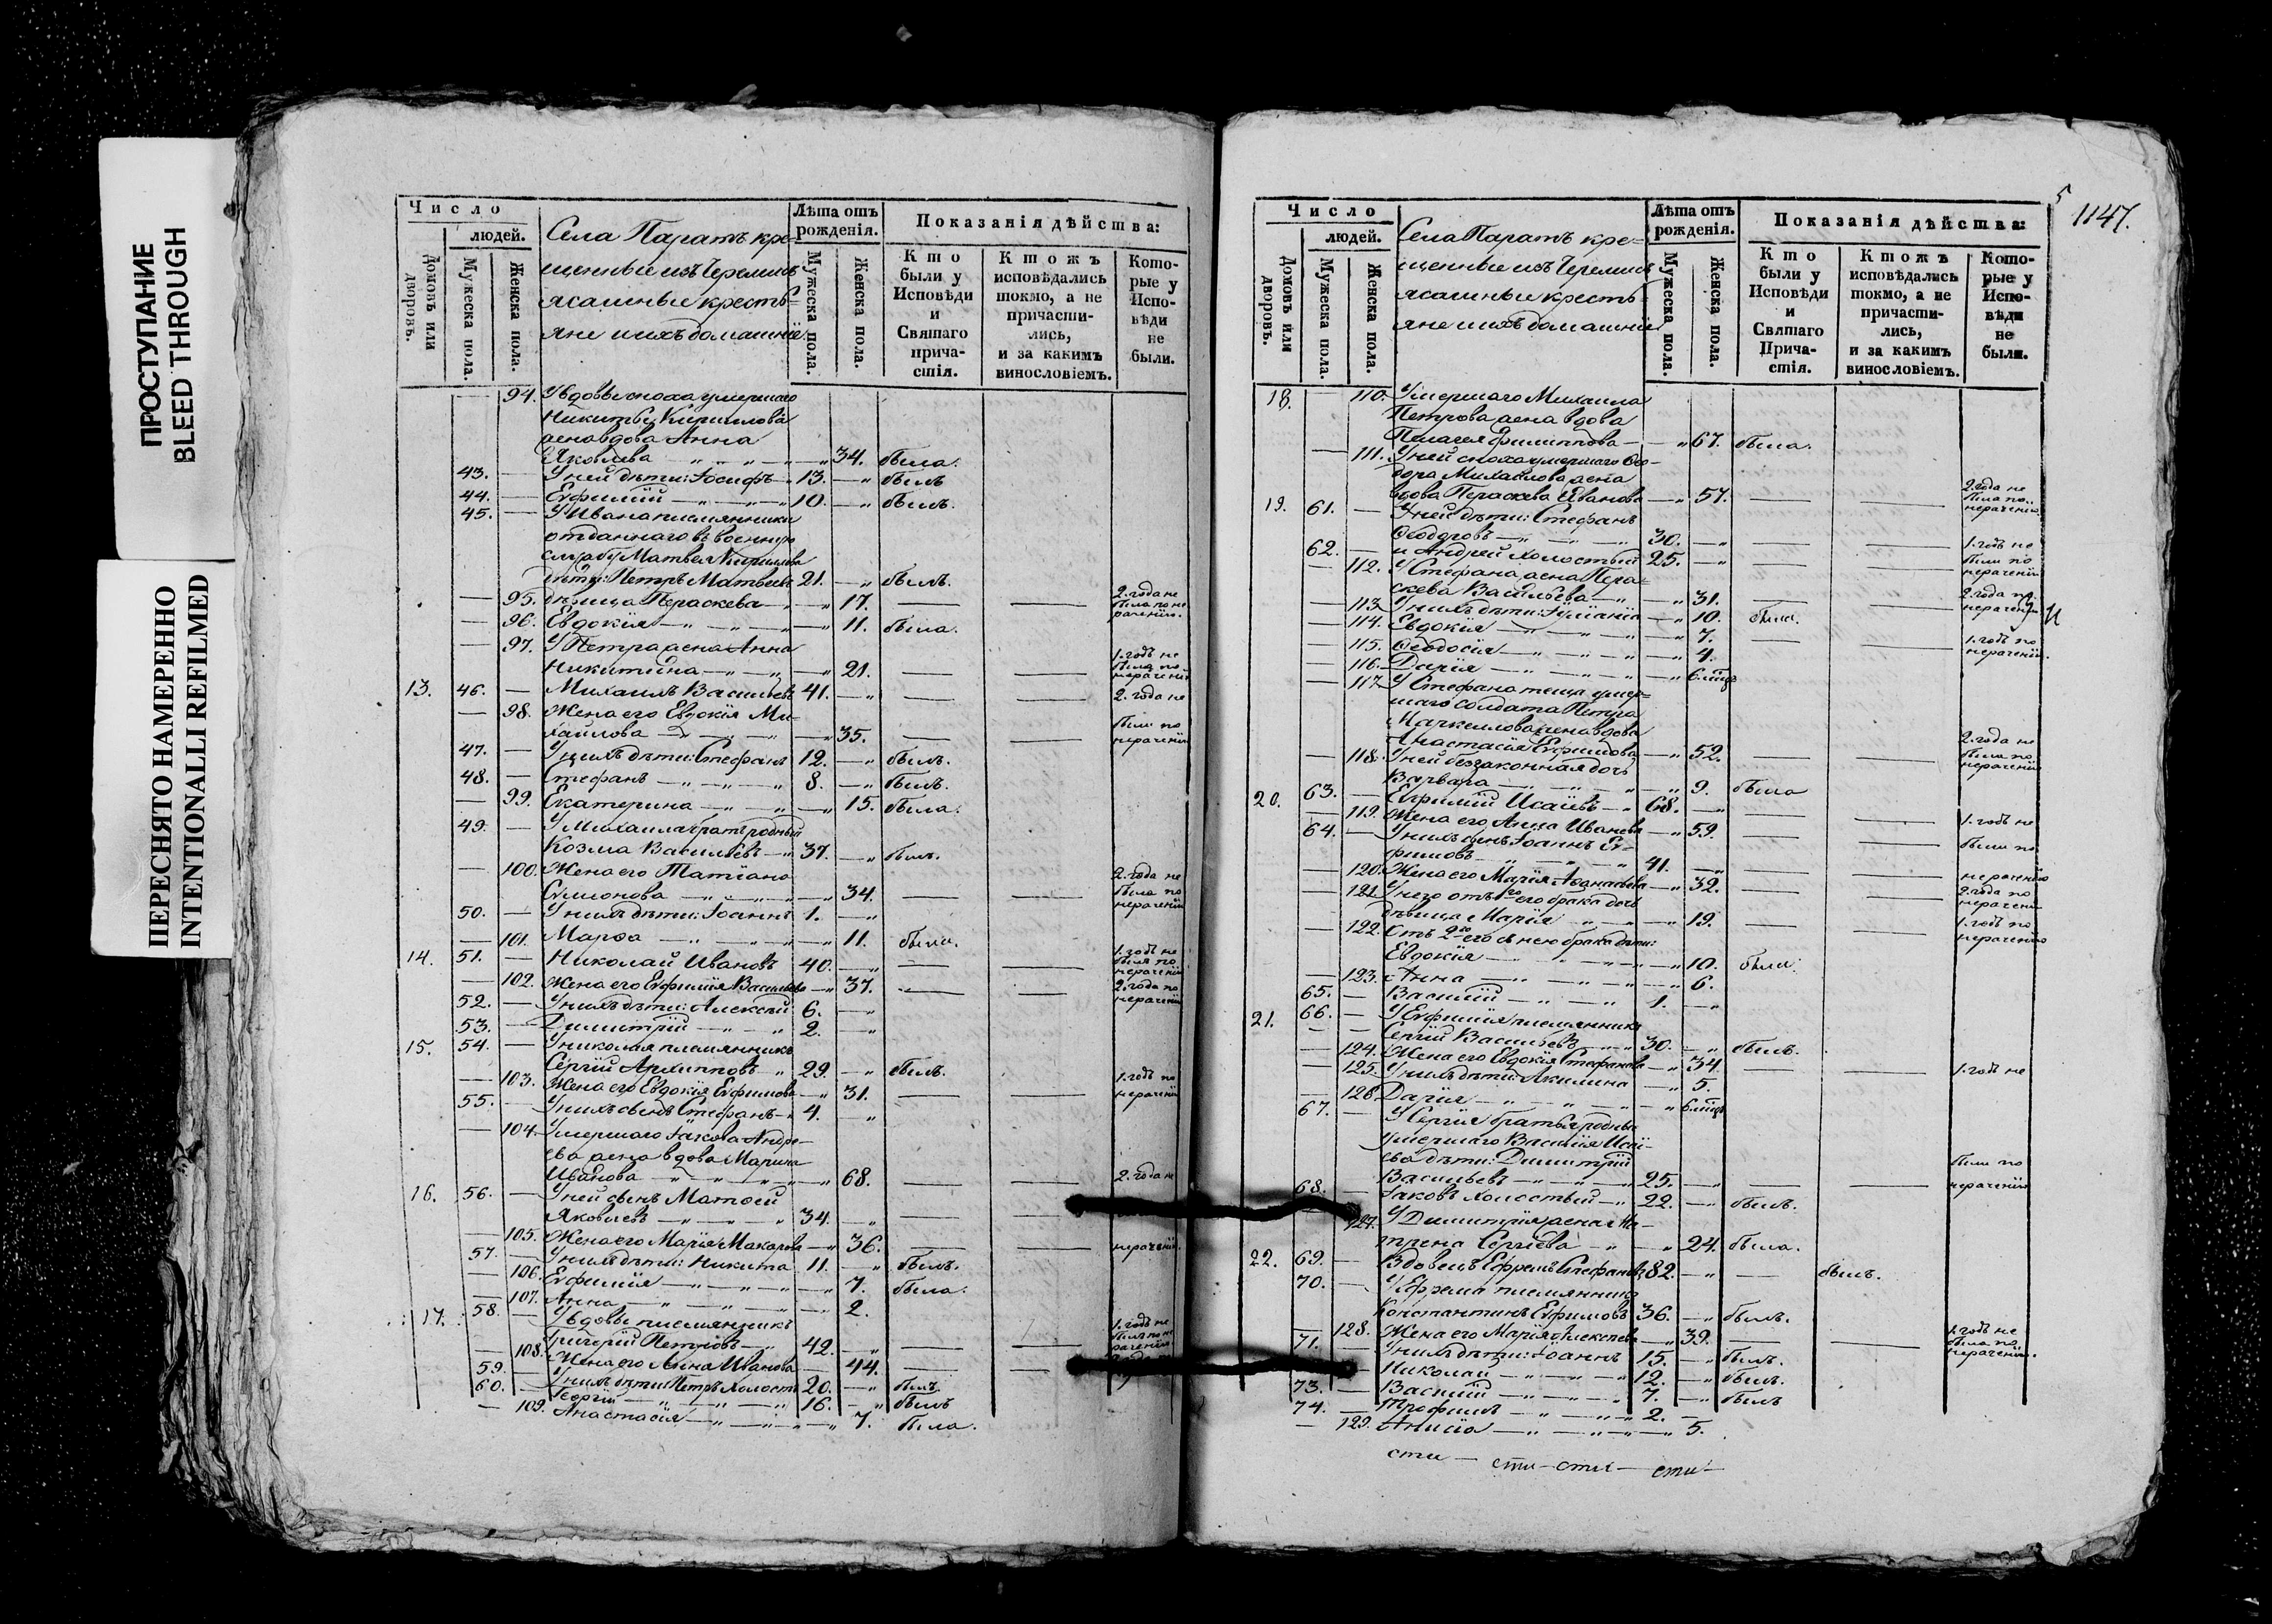 ПРОСТУПАНИЕ
BLEED THROUGH
ПЕРЕСНЯТО НАМЕРЕННО
INTENTIONALLI REFILMED
Число
людей.
Домовъ или дворовъ.
Мужеска пола.
Женска пола.
Села Паратъ кре-
щенные изъ Черемисъ
ясашные кресть-
яне и ихъ домашніе
Лѣта отъ рожденія.
Мужеска пола.
Женска пола.
Показанія дѣйства:
Кто были у Исповѣди и Святаго прича-стія.
Ктожъ исповѣдались токмо, а не причасти-лись, и за какимъ винословіемъ.
Кото-рые у Испо-вѣди не были.
— 94. У вдовы сноха умершаго
Никиты Кириллова
жена вдова Анна
Яковлева — 34. была.
43. — У ней дѣти: Іосифъ 13. — былъ
44. — Евфимій 10. — былъ.
45. — У Ивана племянники
отданнаго въ военную
службу Матвея Кириллова
дѣти: Петръ Матвеевъ 21. — былъ.
— 95. дѣвица Параскева — 17. — — 2. года не была по нерачению.
— 96. Евдокія — 11. была.
— 97. У Петра жена Анна
Никитина — 21. — — 1. годъ не была по нерачению
13. 46. — Михаилъ Васильевъ 41. — 2. года не
— 98. Жена его Евдокія Ми-
хайлова — 35. — — были по нерачению
47. — У нихъ дѣти: Стефанъ 12. — былъ.
48. — Стефанъ 8. — былъ.
— 99. Екатерина — 15. была.
49. — У Михаила братъ родный
Козма Васильевъ 37. — былъ.
— 100. Жена его Татіана
Симонова — 34. — — 2. года не была по нерачению
50. — У нихъ дѣти: Іоаннъ 1. —
— 101. Марѳа — 11. была.
14. 51. — Николай Ивановъ 40. — — — 1. годъ не былъ по нерачению
— 102. Жена его Евфимія Васильева — 37. — — 2. года по нерачению
52. — У нихъ дѣти: Алексѣй 6. —
53. — Димитрій 2. —
15. 54. — У Николая племянникъ
Сергій Архипповъ 29. — былъ.
— 103. Жена его Евдокія Ефимова — 31. — — 1. годъ по нерачению
55. — У нихъ сынъ Стефанъ 4.
— 104. Умершаго Іакова Андре-
ева жена вдова Марина
Иванова — 68. — — 2. года не
16. 56. — У ней сынъ Матѳей
Яковлевъ 34. — — —
— 105. Жена его Марія Макарова — 36. — — нерачению.
57. — У нихъ дѣти: Никита 11. — былъ.
— 106. Евфимія — 7. была.
— 107. Анна — 2.
17. 58. — У вдовы племянникъ
Григорій Петровъ 42. — — — 1. годъ не былъ по нерачению
— 108. Жена его Анна Иванова — 44. — —
59. — У нихъ дѣти: Петръ холостъ 20. — былъ
60. — Георгій 16. — былъ
— 109. Анастасія — 7. была.
5
1147.
Число
людей.
Домовъ или дворовъ.
Мужеска пола.
Женска пола.
Села Паратъ кре-
щенные изъ Черемисъ
ясашные кресть-
яне и ихъ домашніе
Лѣта отъ рожденія.
Мужеска пола.
Женска пола.
Показанія дѣйства:
Кто были у Исповѣди и Святаго Прича-стія.
Ктожъ исповѣдались токмо, а не причасти-лись, и за какимъ винословіемъ.
Кото-рые у Испо-вѣди не были.
18. — 110. Умершаго Михаила
Петрова жена вдова
Пелагея Филиппова — 67. была.
— 111. У ней сноха умершаго Ѳео-
дора Михайлова жена
вдова Параскева Иванова — 57. — — 2. года не была по нерачению
19. 61. — У ней дѣти: Стефанъ
Ѳеодоровъ 30. — — — 1. годъ не
62. — и Андрей холостый 25. — — — были по нерачению
— 112. У Стефана жена Пара-
скева Васильева — 31. — — 2. года по нерачению
— 113. У нихъ дѣти: Іуліанія — 10. была.
— 114. Евдокія — 7. — — 1. годъ по нерачению.
— 115. Ѳеодосія — 4.
— 116. Дарія — 6. мѣся
— 117. У Стефана теща умер-
шаго солдата Петра
Маркеллова жена вдова
Анастасія Евфимова — 52. — — 2. года не была по нерачению
— 118. У ней беззаконная дочь
Варвара — 9. была
20. 63. — Евфимій Исаевъ 68. —
— 119. Жена его Анна Иванова — 59. — — 1. годъ не
64. — У нихъ сынъ Іоаннъ Ев-
фимовъ 41. — — были по
— 120. Жена его Марія Аѳанасьева — 32. — — нерачению
— 121. У него отъ 1го его брака дочь
дѣвица Марія — 19. — — 2. года по нерачению
— 122. Отъ 2го его съ нею брака дѣти:
Евдокія — 10. была.
— 123. Анна — 6.
65. — Василій 1. —
21. 66. — У Евфимія племянникъ
Сергій Васильевъ 30. — былъ.
— 124. Жена его Евдокія Стефанова — 34 — — 1. годъ не
— 125. У нихъ дѣти: Акилина — 5.
— 126 Дарія — 6. мѣся
67. — У Сергія братья родные
умершаго Василія Исаі-
ева дѣти: Димитрій
Васильевъ 25. — — — были по нерачению
68. — Іаковъ холостый 22. — былъ.
— 127. У Димитрія жена Ма-
трена Сергіева — 24. была.
22. 69. — Вдовецъ Ефремъ Стефановъ 82. — — былъ.
70. — У Ефрема племянникъ
Константинъ Евфимовъ 36. — былъ.
— 128. Жена его Марія Алексѣева — 39. — — 1. годъ не была по нерачению.
71. — У нихъ дѣти: Іоаннъ 15. — былъ.
Николай 12. — былъ.
73. — Василій 7. — былъ
74. — Трофимъ 2. —
— 129. Анисія — 5.
сти — сти — сти — сти —